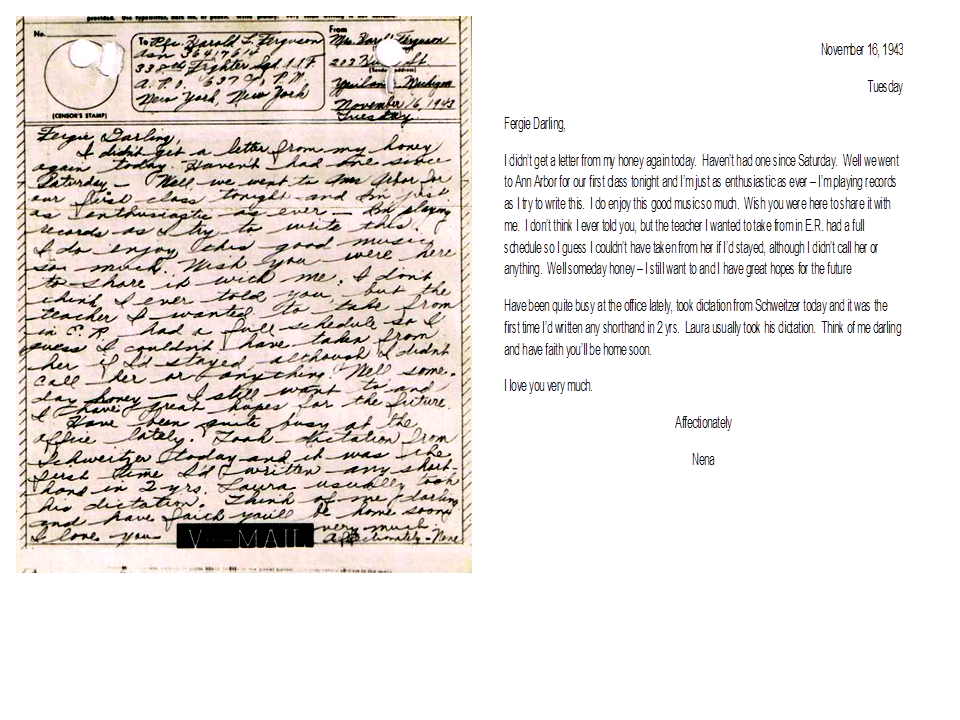 No.
(CENSOR'S STAMP)
To Pfc. Harold L. Ferguson
Asn 36417614
338th Fighter Sqd. 
A.P.O. 637 P.M.
New York, New York
From
Mrs. Harold Ferguson
203
(Sender's address)
Ypsilanti Michigan
November 16, 1943
Tuesday
Fergie Darling,
I didn't get a letter from my honey
again today. Haven't had one since
Saturday – Well we went to Ann Arbor for
our first class tonight and I'm just
as enthusiastic as ever – I'm playing
records as I try to write this.
I do enjoy this good music
so much. Wish you were here
to share it with me. I don't
think I ever told you, but the
teacher I wanted to take from
in E.R. had a full schedule so I
guess I couldn't have taken from
her if I'd stayed although I didn't
call her or anything. Well some-
day honey – I still want to and
I have great hopes for the future.
Have been quite busy at the
office lately. Took dictation from
Schweitzer today and it was the
first time I'd written any short-
hand in 2 yrs. Laura usually took
his dictation. Think of me darling
and have faith you'll be home soon
I love you very much.
Affectionately – Nena
V···—MAIL
November 16, 1943
Tuesday
Fergie Darling,
I didn't get a letter from my honey again today. Haven't had one since Saturday. Well we went
to Ann Arbor for our first class tonight and I'm just as enthusiastic as ever – I'm playing records
as I try to write this. I do enjoy this good music so much. Wish you were here to share it with
me. I don't think I ever told you, but the teacher I wanted to take from in E.R. had a full
schedule so I guess I couldn't have taken from her if I'd stayed, although I didn't call her or
anything. Well someday honey – I still want to and I have great hopes for the future
Have been quite busy at the office lately, took dictation from Schweitzer today and it was the
first time I'd written any shorthand in 2 yrs. Laura usually took his dictation. Think of me darling
and have faith you'll be home soon.
I love you very much.
Affectionately
Nena